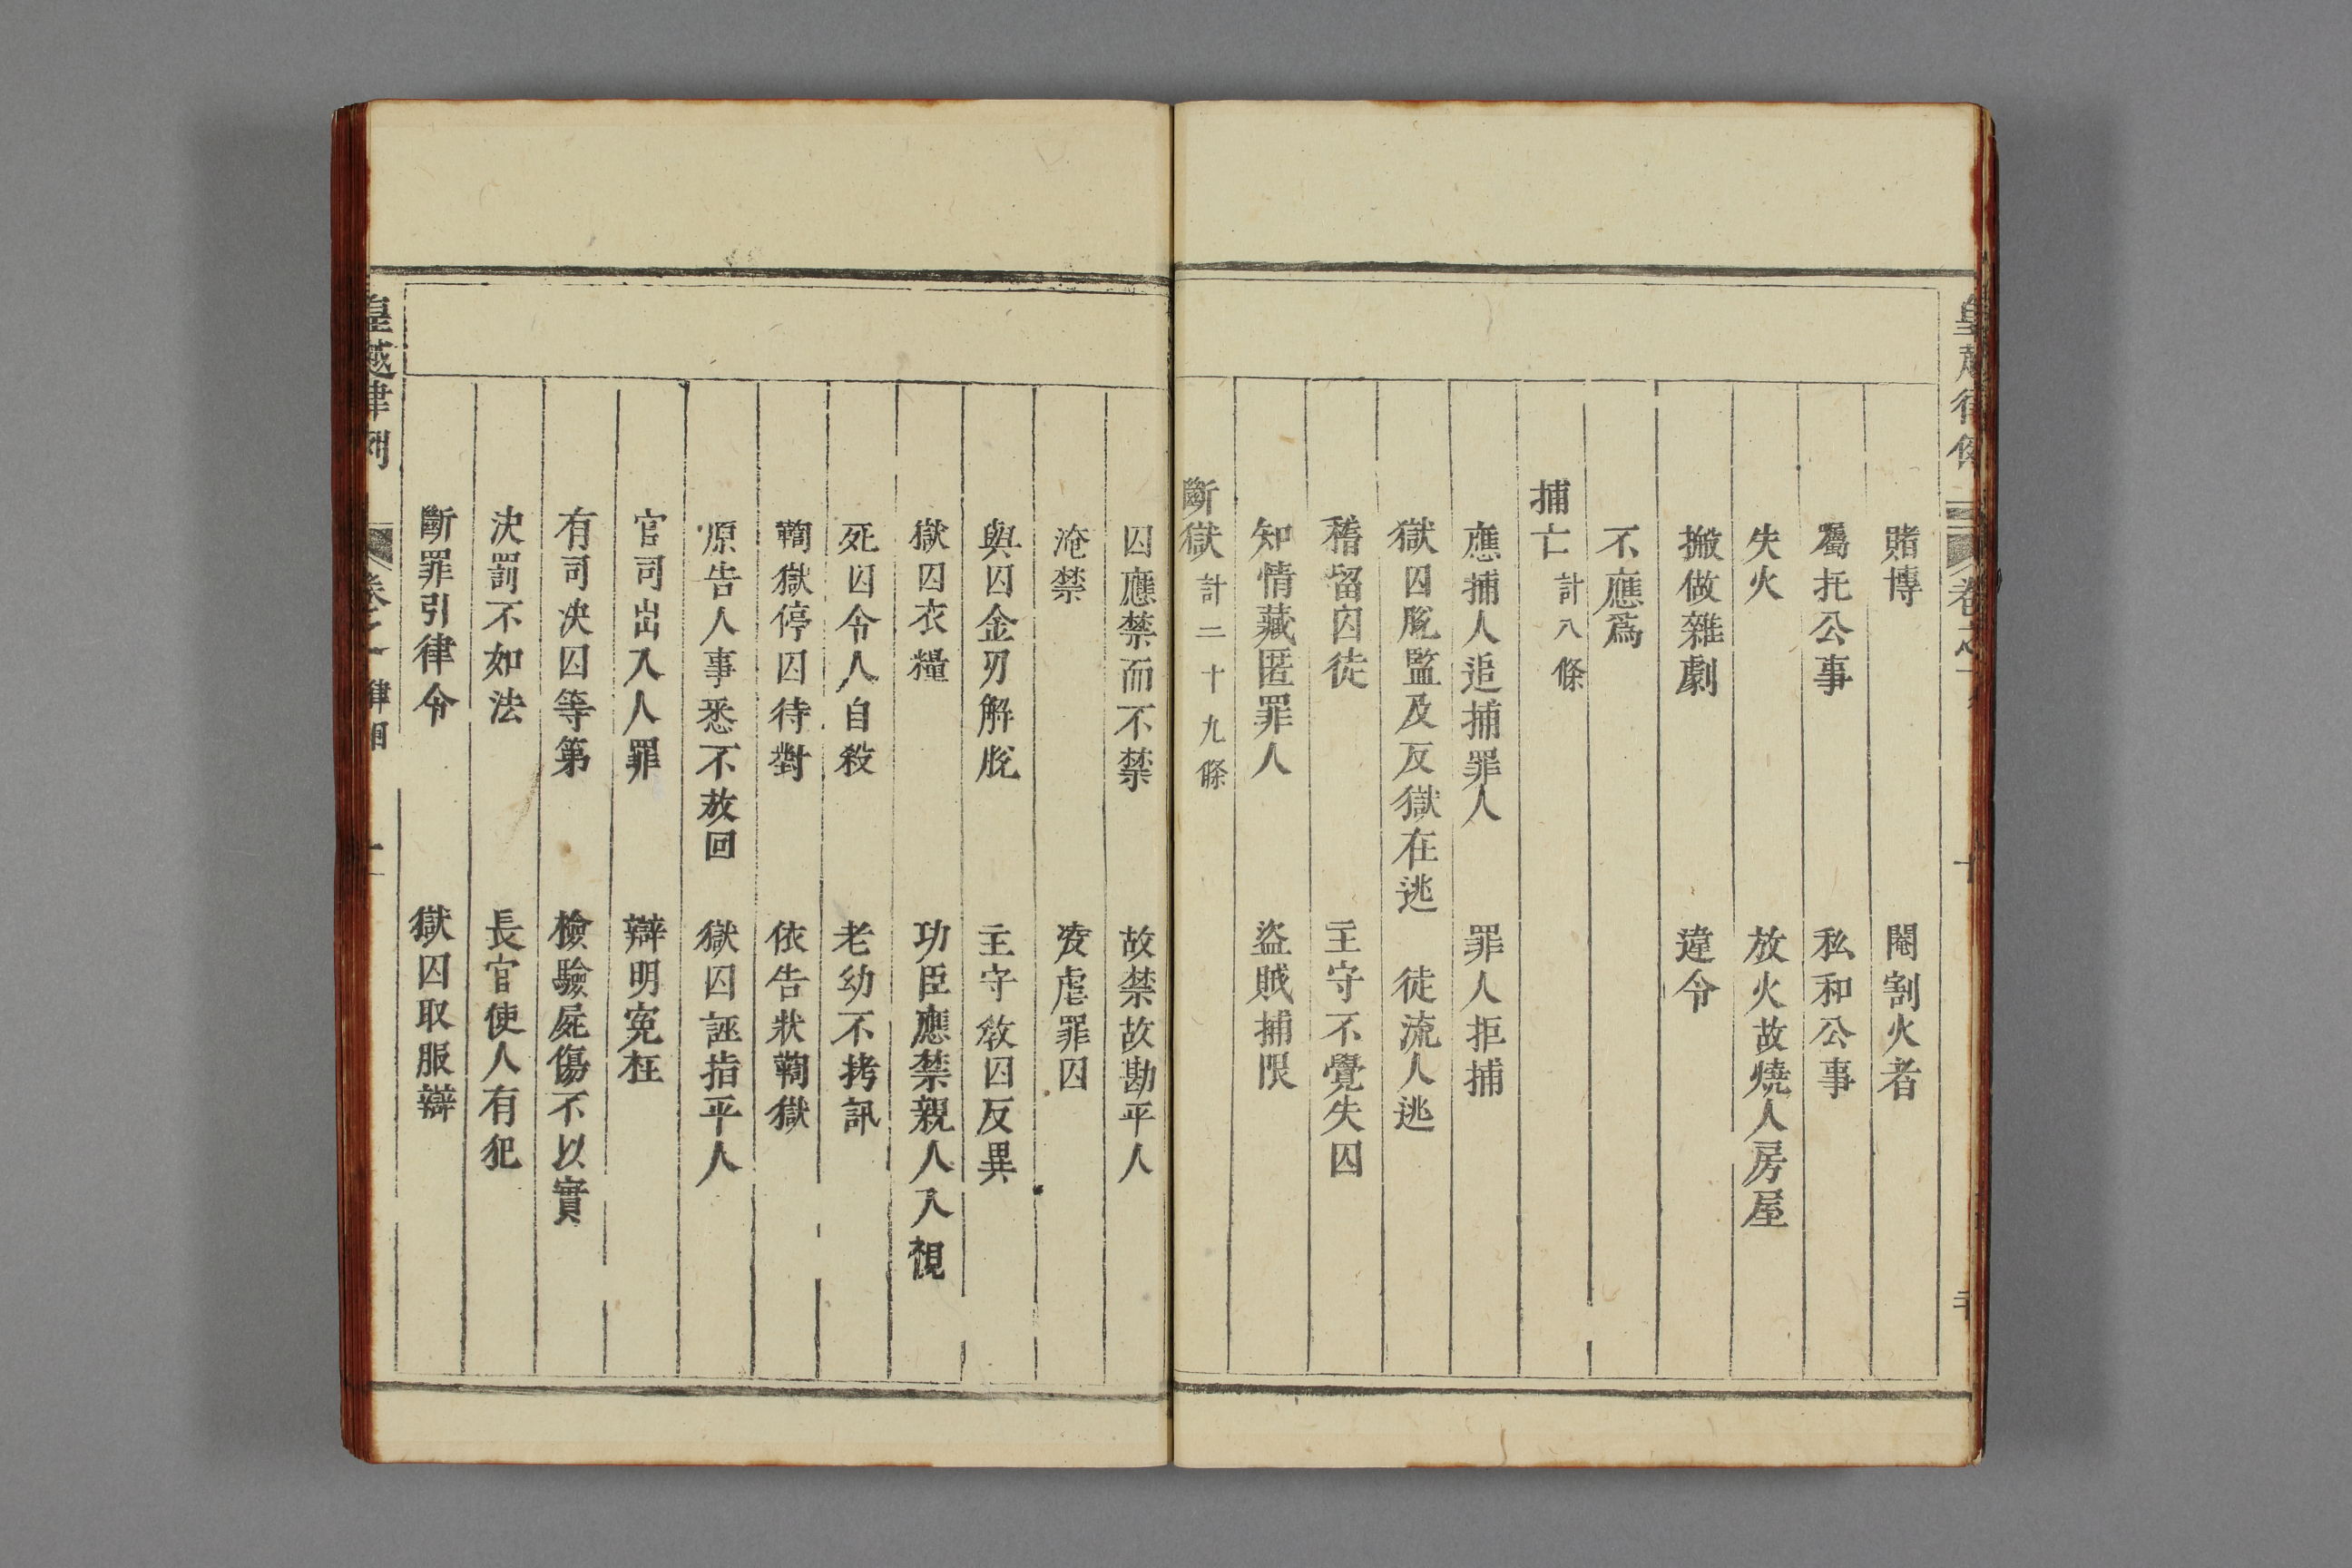 賭博 閹割火者
囑托公事 私和公事
失火 放火故燒人房屋
搬做雜劇 違令
不應爲
捕亡 計八條
應捕人追捕罪人 罪人拒捕
獄囚脫監及反獄在逃 徒流人逃
稽留囚徒 主守不覺失囚
知情藏匿罪人 盜賊捕限
斷獄 計二十九條
囚應禁而不禁 故禁故勘平人
淹禁 凌虐罪囚
與囚金刃解脫 主守教囚反異
獄囚衣糧 功臣應禁親人入視
死囚令人自殺 老幼不拷訊
鞫獄停囚待對 依告狀鞫獄
原告人事悉不放回 獄囚誣指平人
官司出入人罪 辯明冤枉
有司决囚等第 檢驗屍傷不以實
决罰不如法 長官使人有犯
斷罪引律令 獄囚取服辯
皇越律例 卷之一 律目